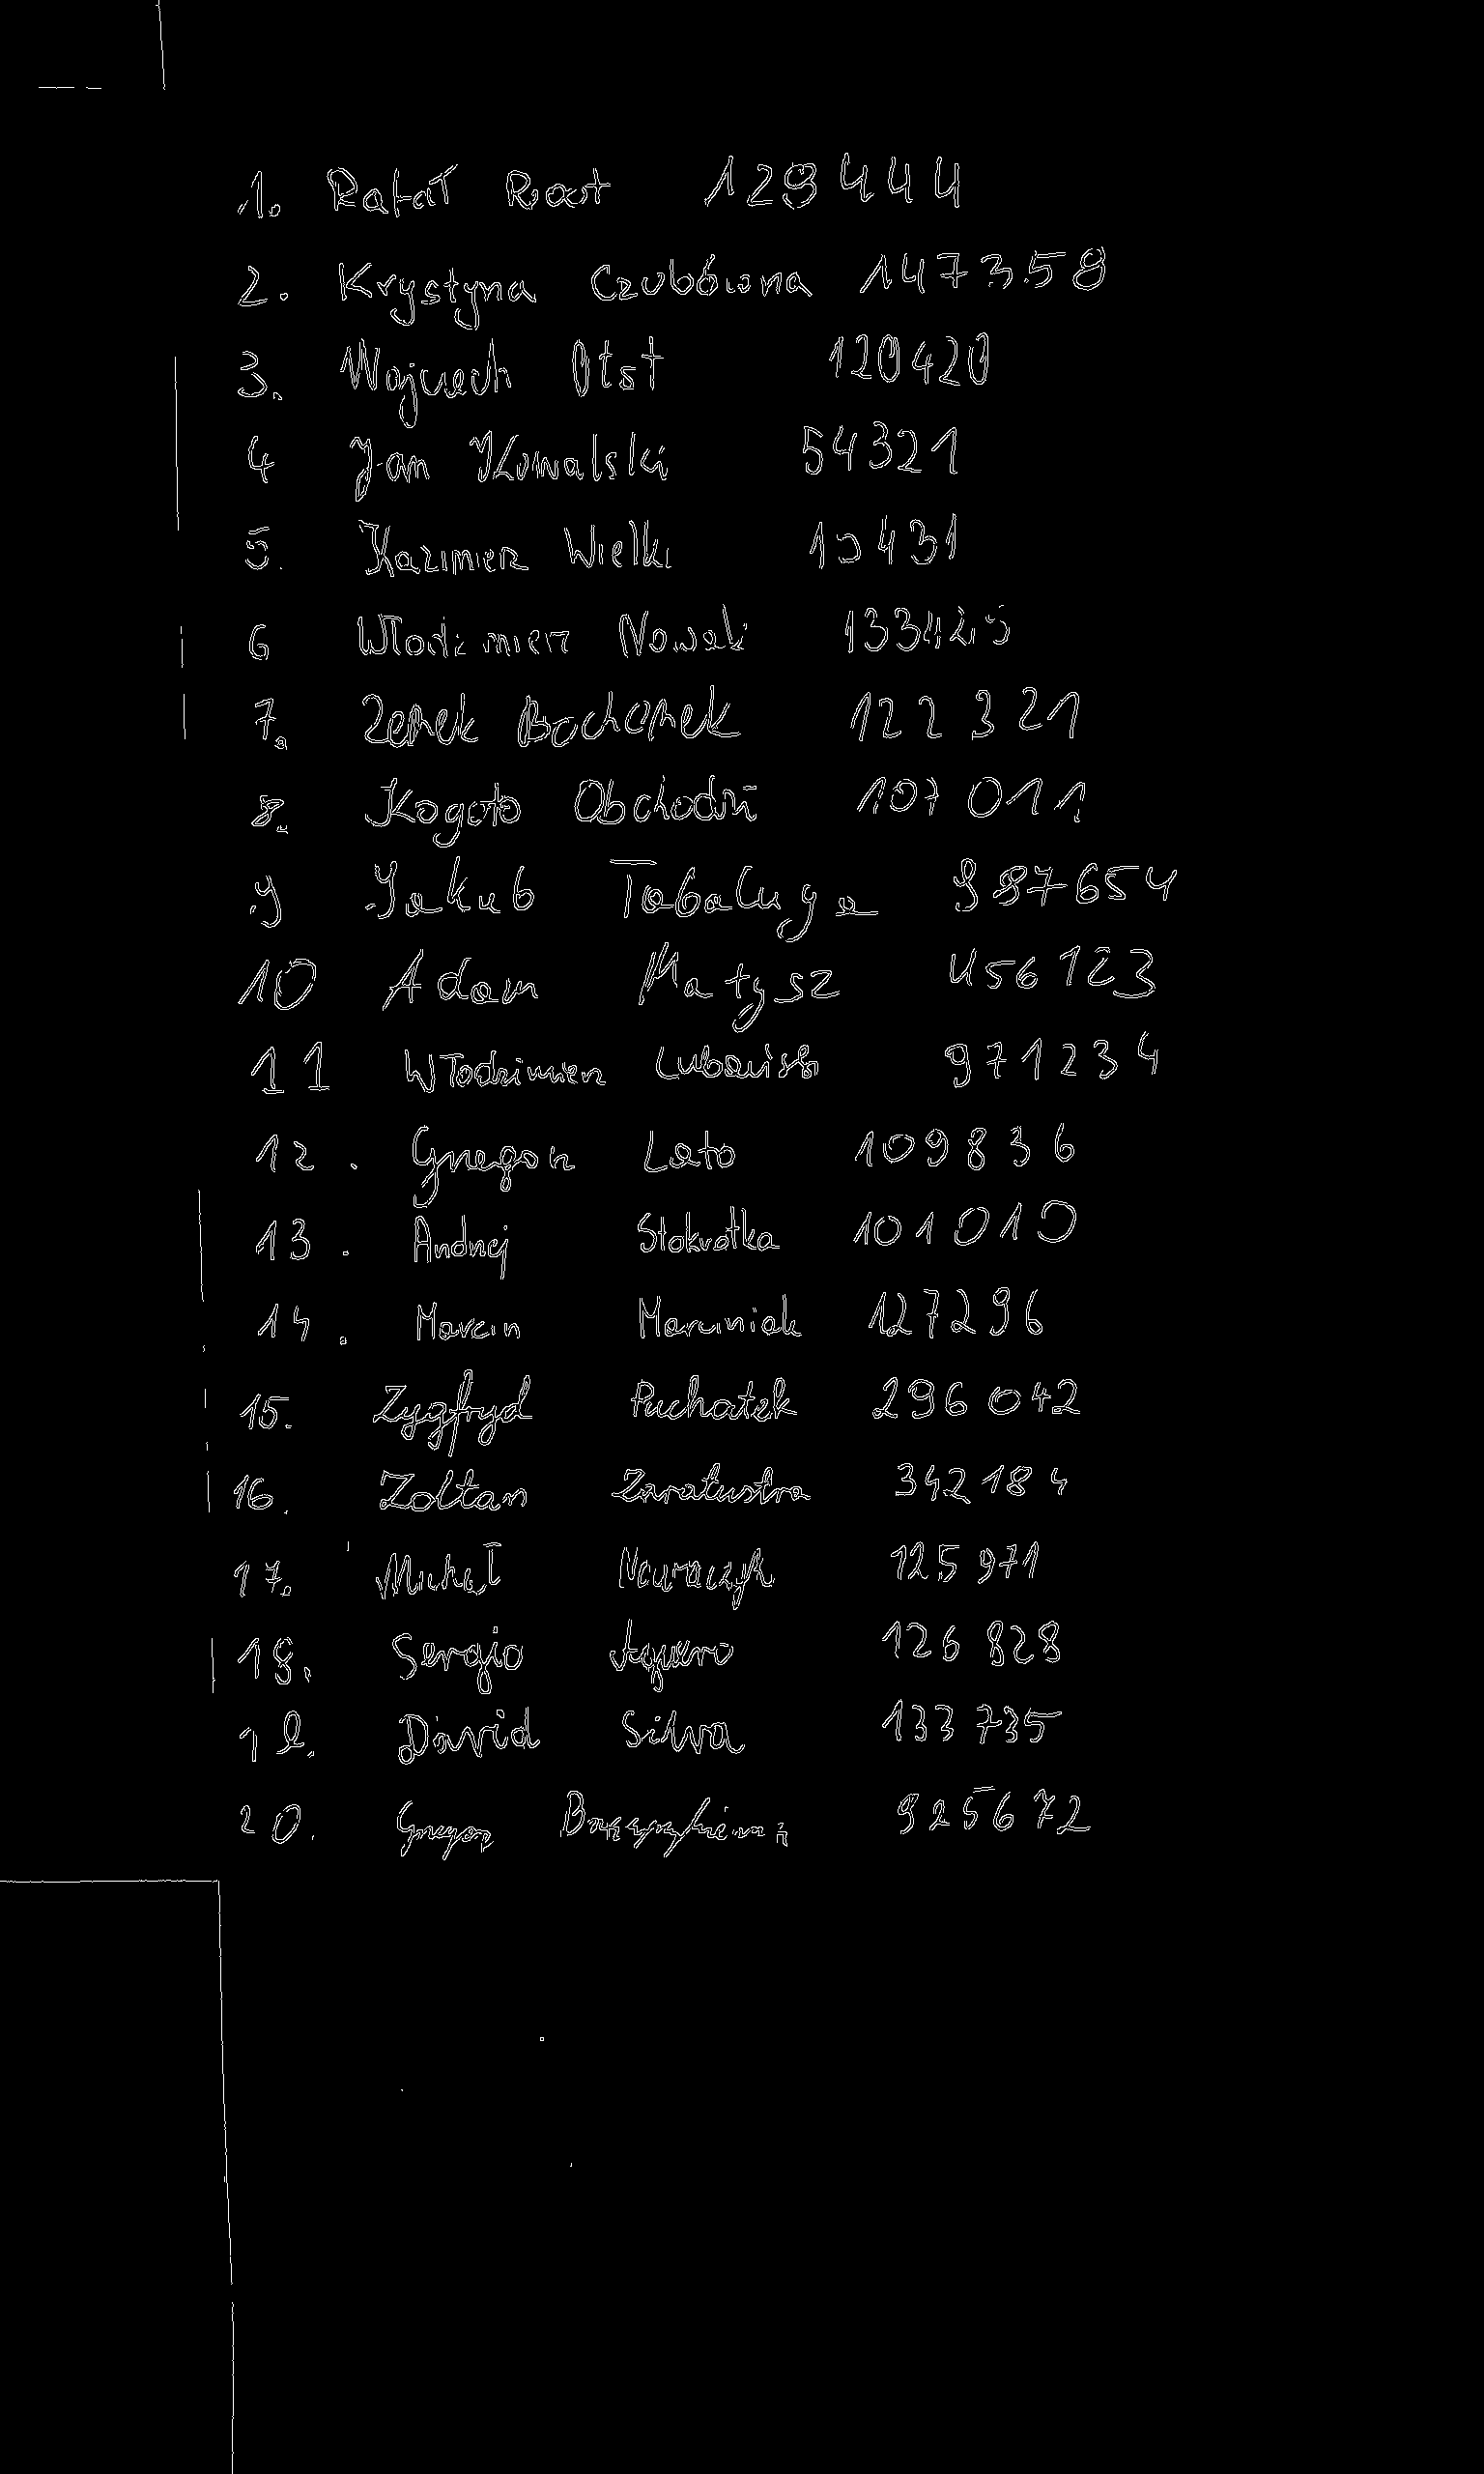 1. Rafał Rost 129444
2. Krystyna Czubówna 147358
3. Wojciech Otst 120420
4 Jan Kowalski 54321
5. Kazimierz Wielki 10431
6 Włodzimierz Nowak
7. Zenek Bochenek 122321
8. Kogoto Obchodzi 107011
9 Jakub Tabaluga 987654
10 Adam Matysz 456123
11 Włodzimierz Lubański 971234
12. Grzegorz Lato 109836
13. Andrzej Stokrotka 101010
14. Marcin Marciniak 127296
15. Zygfryd Puchatek 296042
16. Zoltan Zaratustra 342184
17. Michał 125971
18. Sergio Aguero 126828
19. David Silva 133735
20. Grzegorz 925672